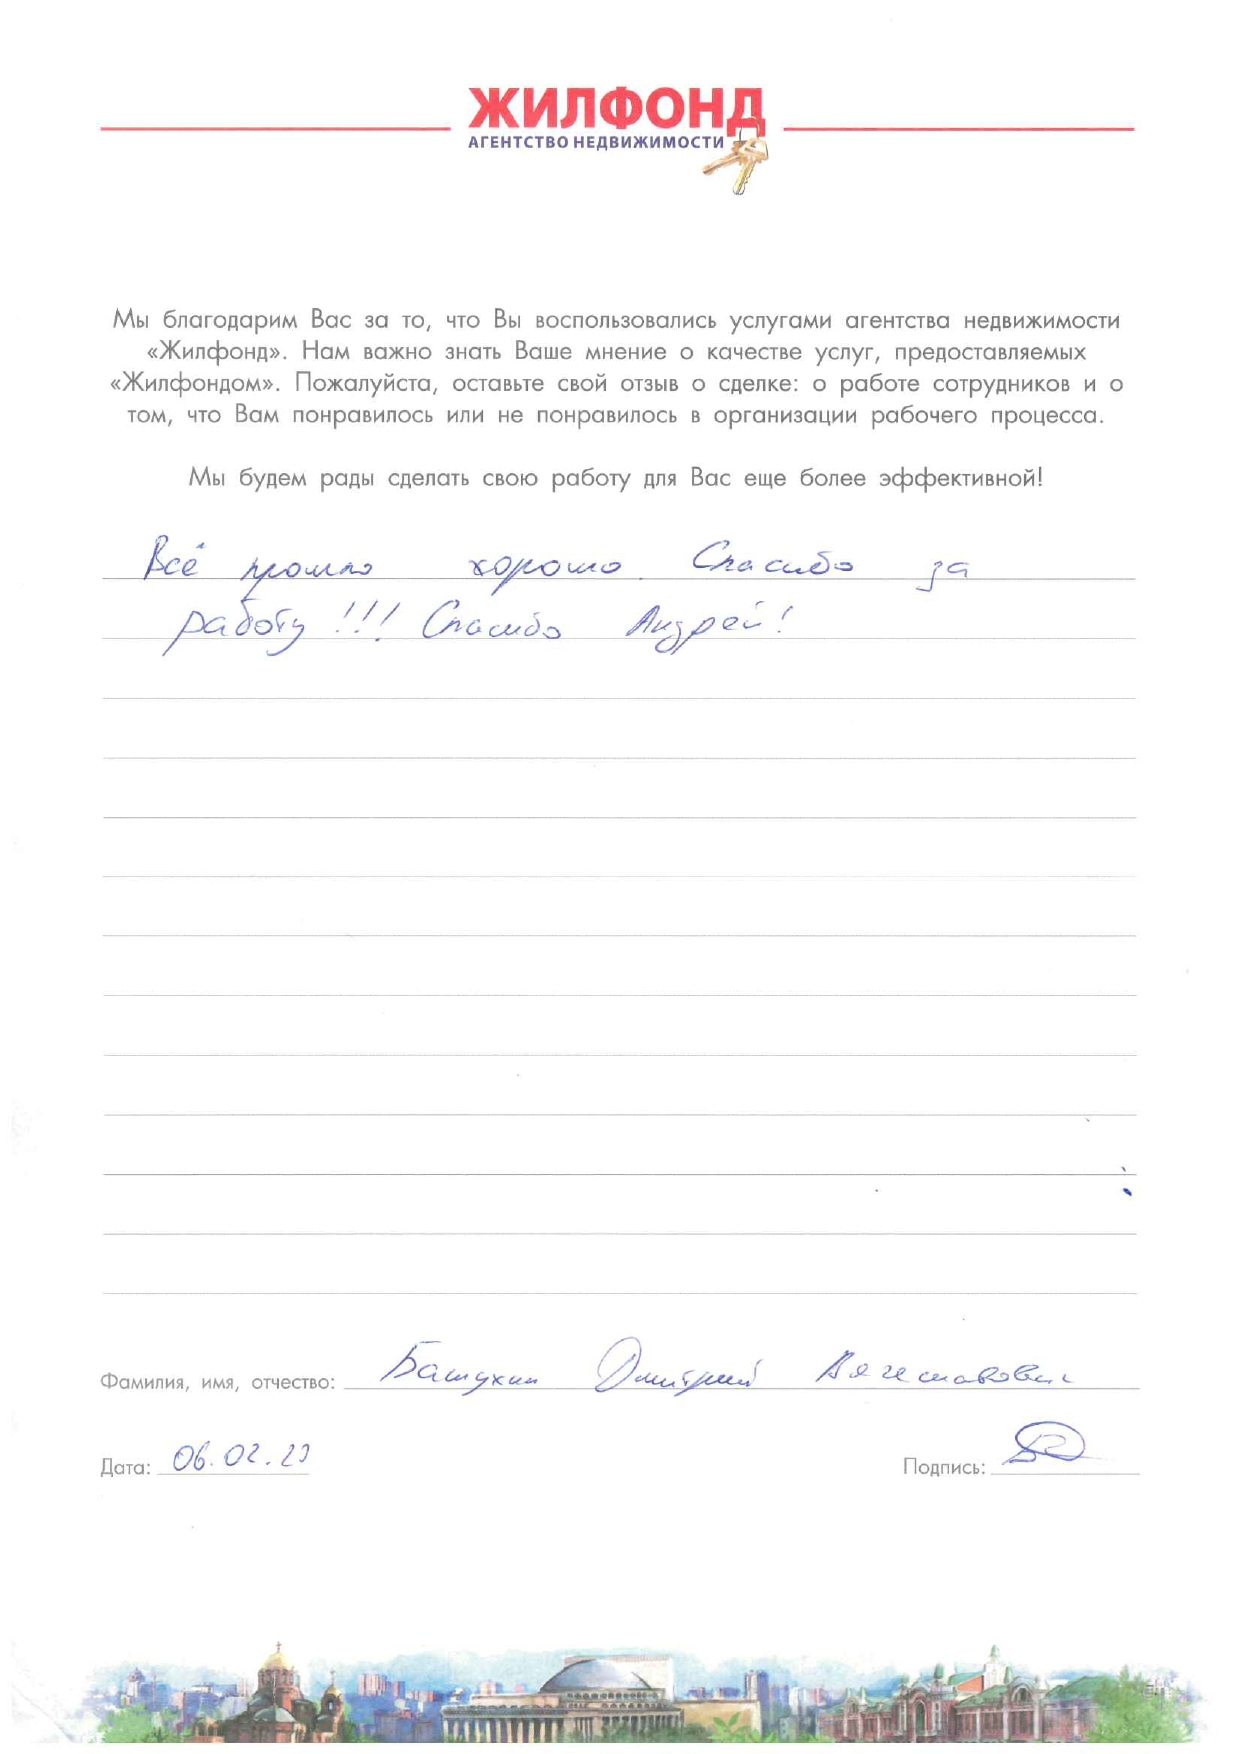 ЖИЛФОНД
АГЕНТСТВО НЕДВИЖИМОСТИ
Мы благодарим Вас за то, что Вы воспользовались услугами агентства недвижимости
«Жилфонд». Нам важно знать Ваше мнение о качестве услуг, предоставляемых
«Жилфондом». Пожалуйста, оставьте свой отзыв о сделке: о работе сотрудников и о
том, что Вам понравилось или не понравилось в организации рабочего процесса.
Мы будем рады сделать свою работу для Вас еще более эффективной!
Всё прошло хорошо. Спасибо за
работу!!! Спасибо Андрей!
Фамилия, имя, отчество: Дмитрий Вячеславович
Дата: 06.02.23
Подпись: